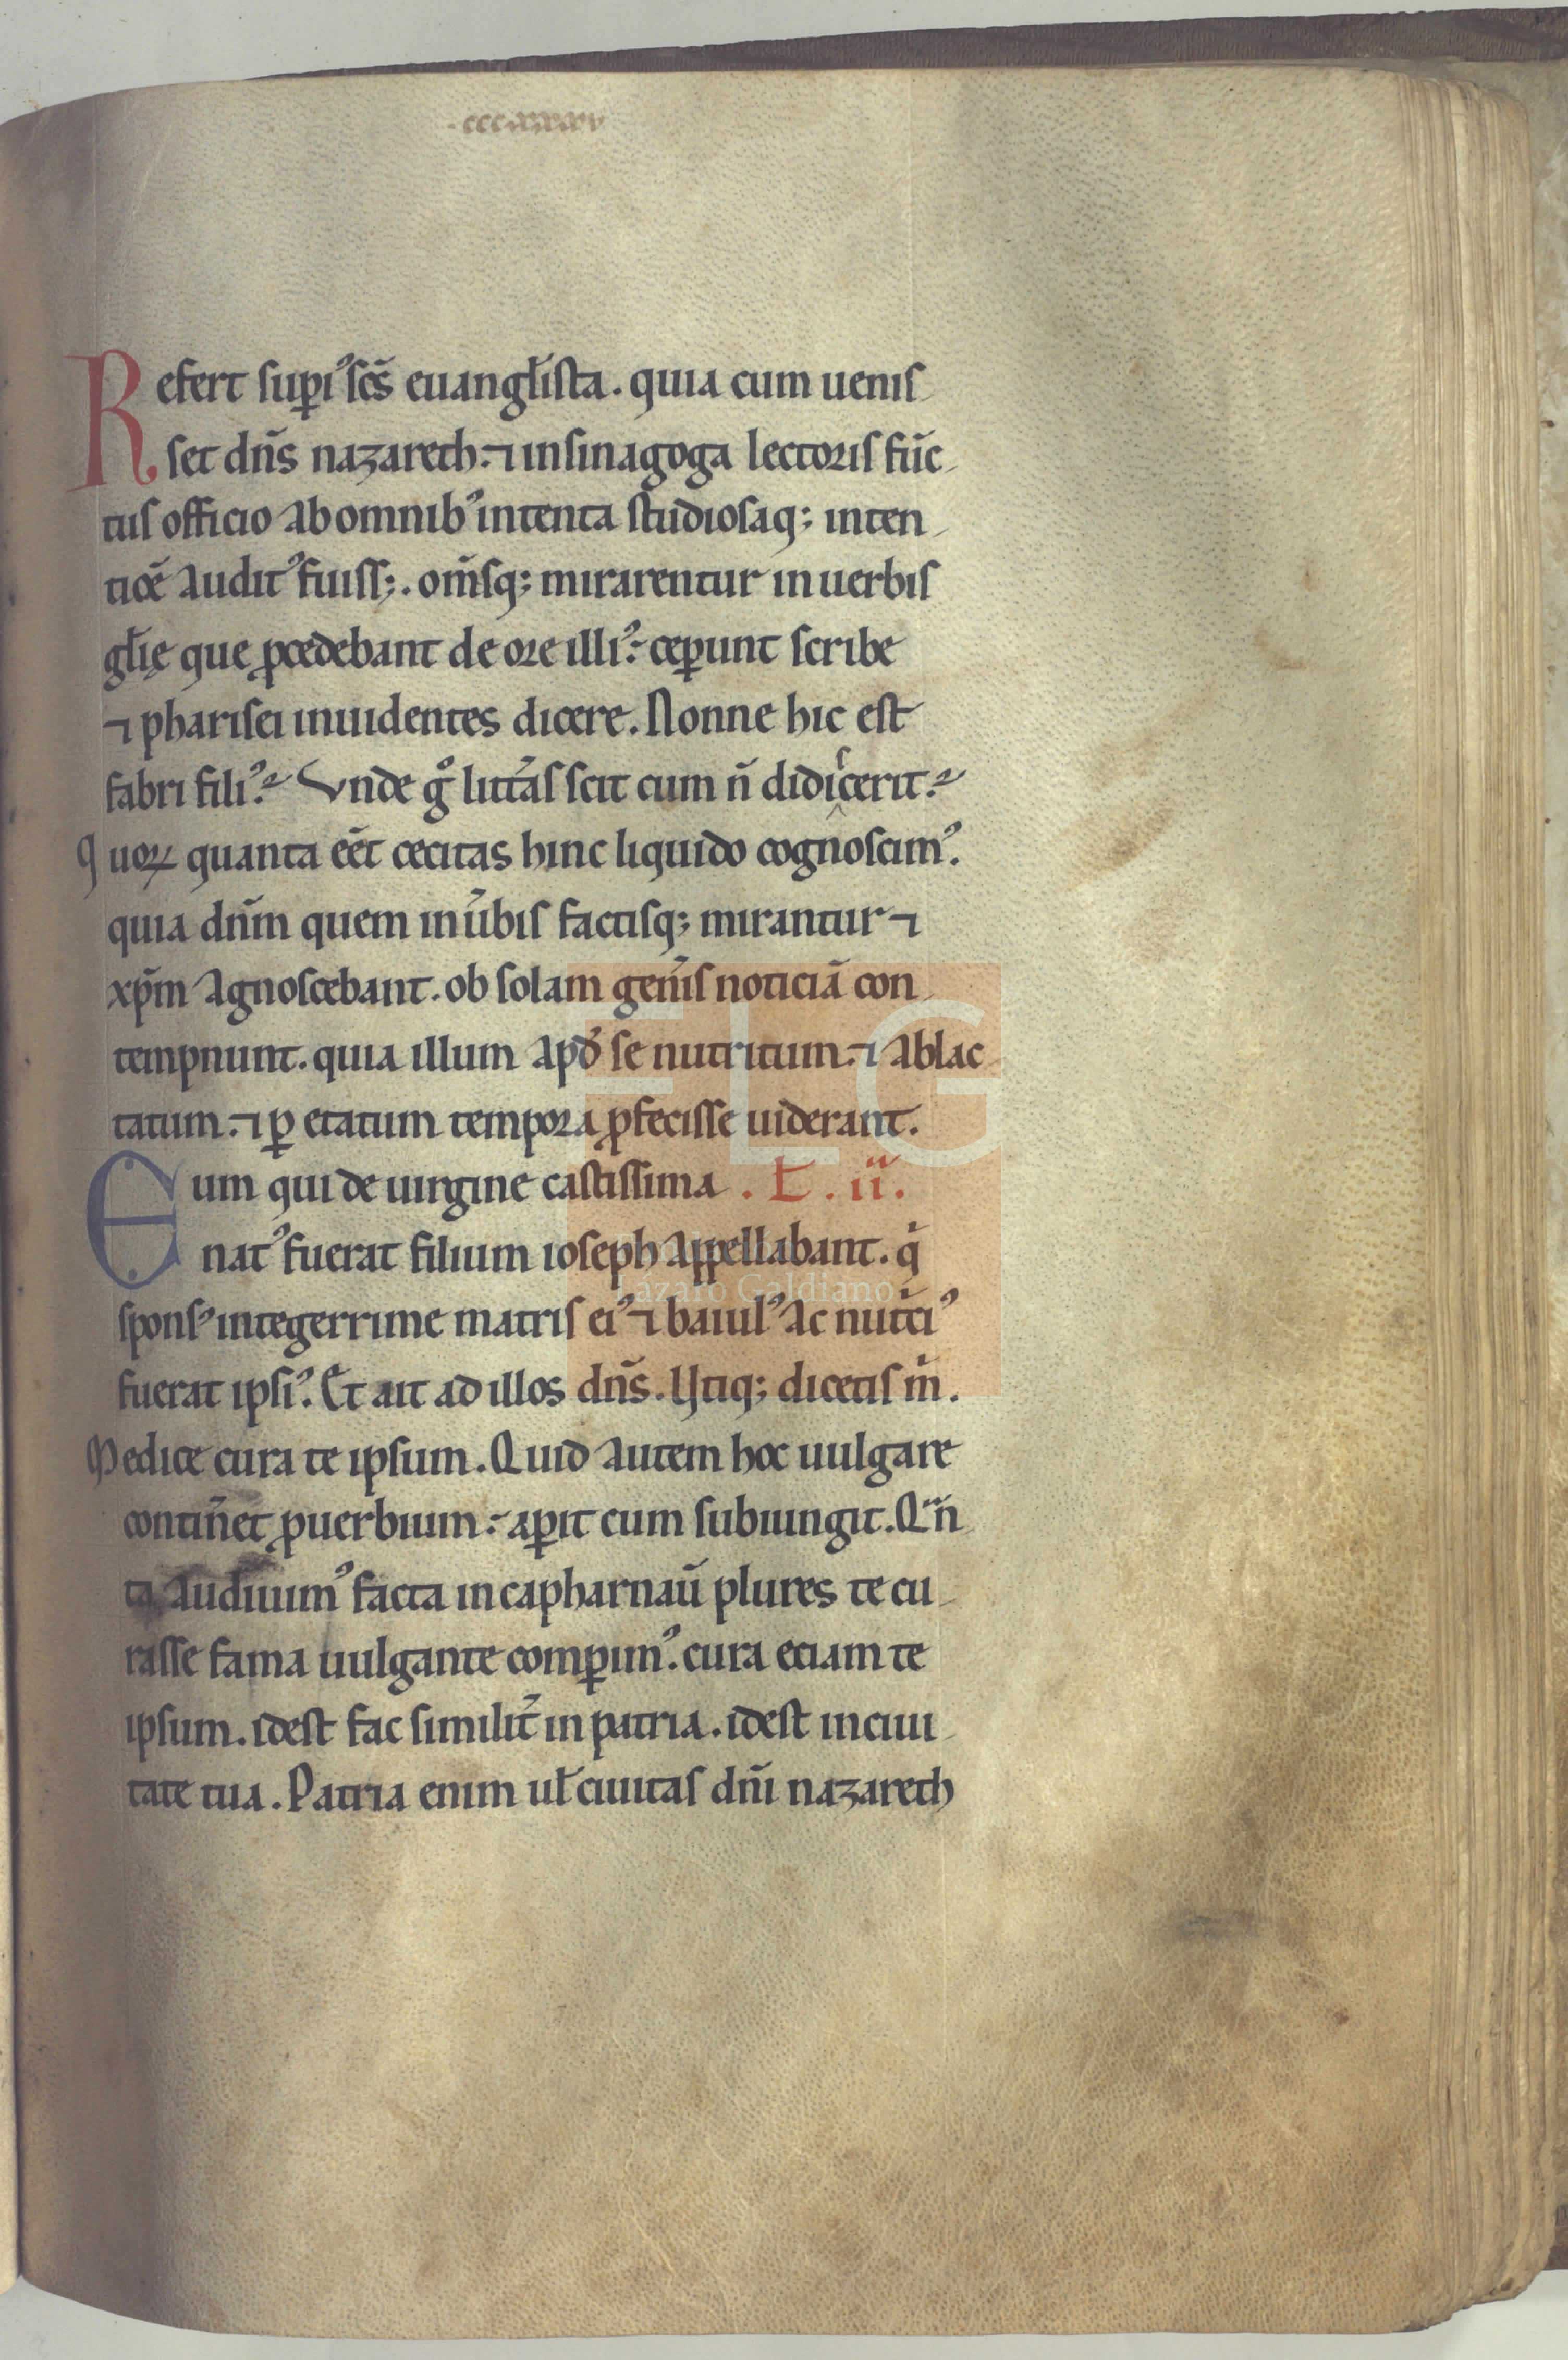 Refert suꝑiꝰ sc̄s euangl̄ista. quia cum uenis
set dn̄s nazareth. ⁊ in sinagoga lectoris fūc
tus officio ab omnibꝰ intenta studiosaq; inten
tiōē auditꝰ fuiss;. om̄sq; mirarentur in uerbis
gl̄ię que ꝓcedebant de ore illiꝰ. ceꝑunt scribe
⁊ pharisei inuidentes dicere. Nonne hic est
fabri filiꝰ? Vnde gͦ litt̄as scit cum n̄ didicerit?
quoꝝ quanta eēt cecitas hinc liquido cognoscimꝰ.
quia dn̄m quem in ūbis factisq; mirantur ⁊
xp̄m agnoscebant. ob solam gen̄is noticiā con
tempnunt. quia illum apd̄ se nutritum. ⁊ ablac
tatum. ⁊ ꝑ etatum tempora ꝓfecisse uiderant.
Eum qui de uirgine castissima . Ł . ii.
natꝰ fuerat filium ioseph appellabant. qⁱ
sponsꝰ integerrime matris eiꝰ ⁊ baiulꝰ ac nutⁱciꝰ
fuerat ipsiꝰ. Et ait ad illos dn̄s. Utiq; dicetis mⁱ.
Medice cura te ipsum. Quid autem hoc uulgare
contin̄et ꝓuerbium. aꝑit cum subiungit. Qᵃn
ta audiuimꝰ facta in capharnaū plures te cu
rasse fama uulgante comꝑimꝰ. cura eciam te
ipsum. idest fac similit̄ in patria. idest in ciui
tate tua. Patria enim ul̄ ciuitas dn̄i nazareth
FLG
Lázaro Galdiano